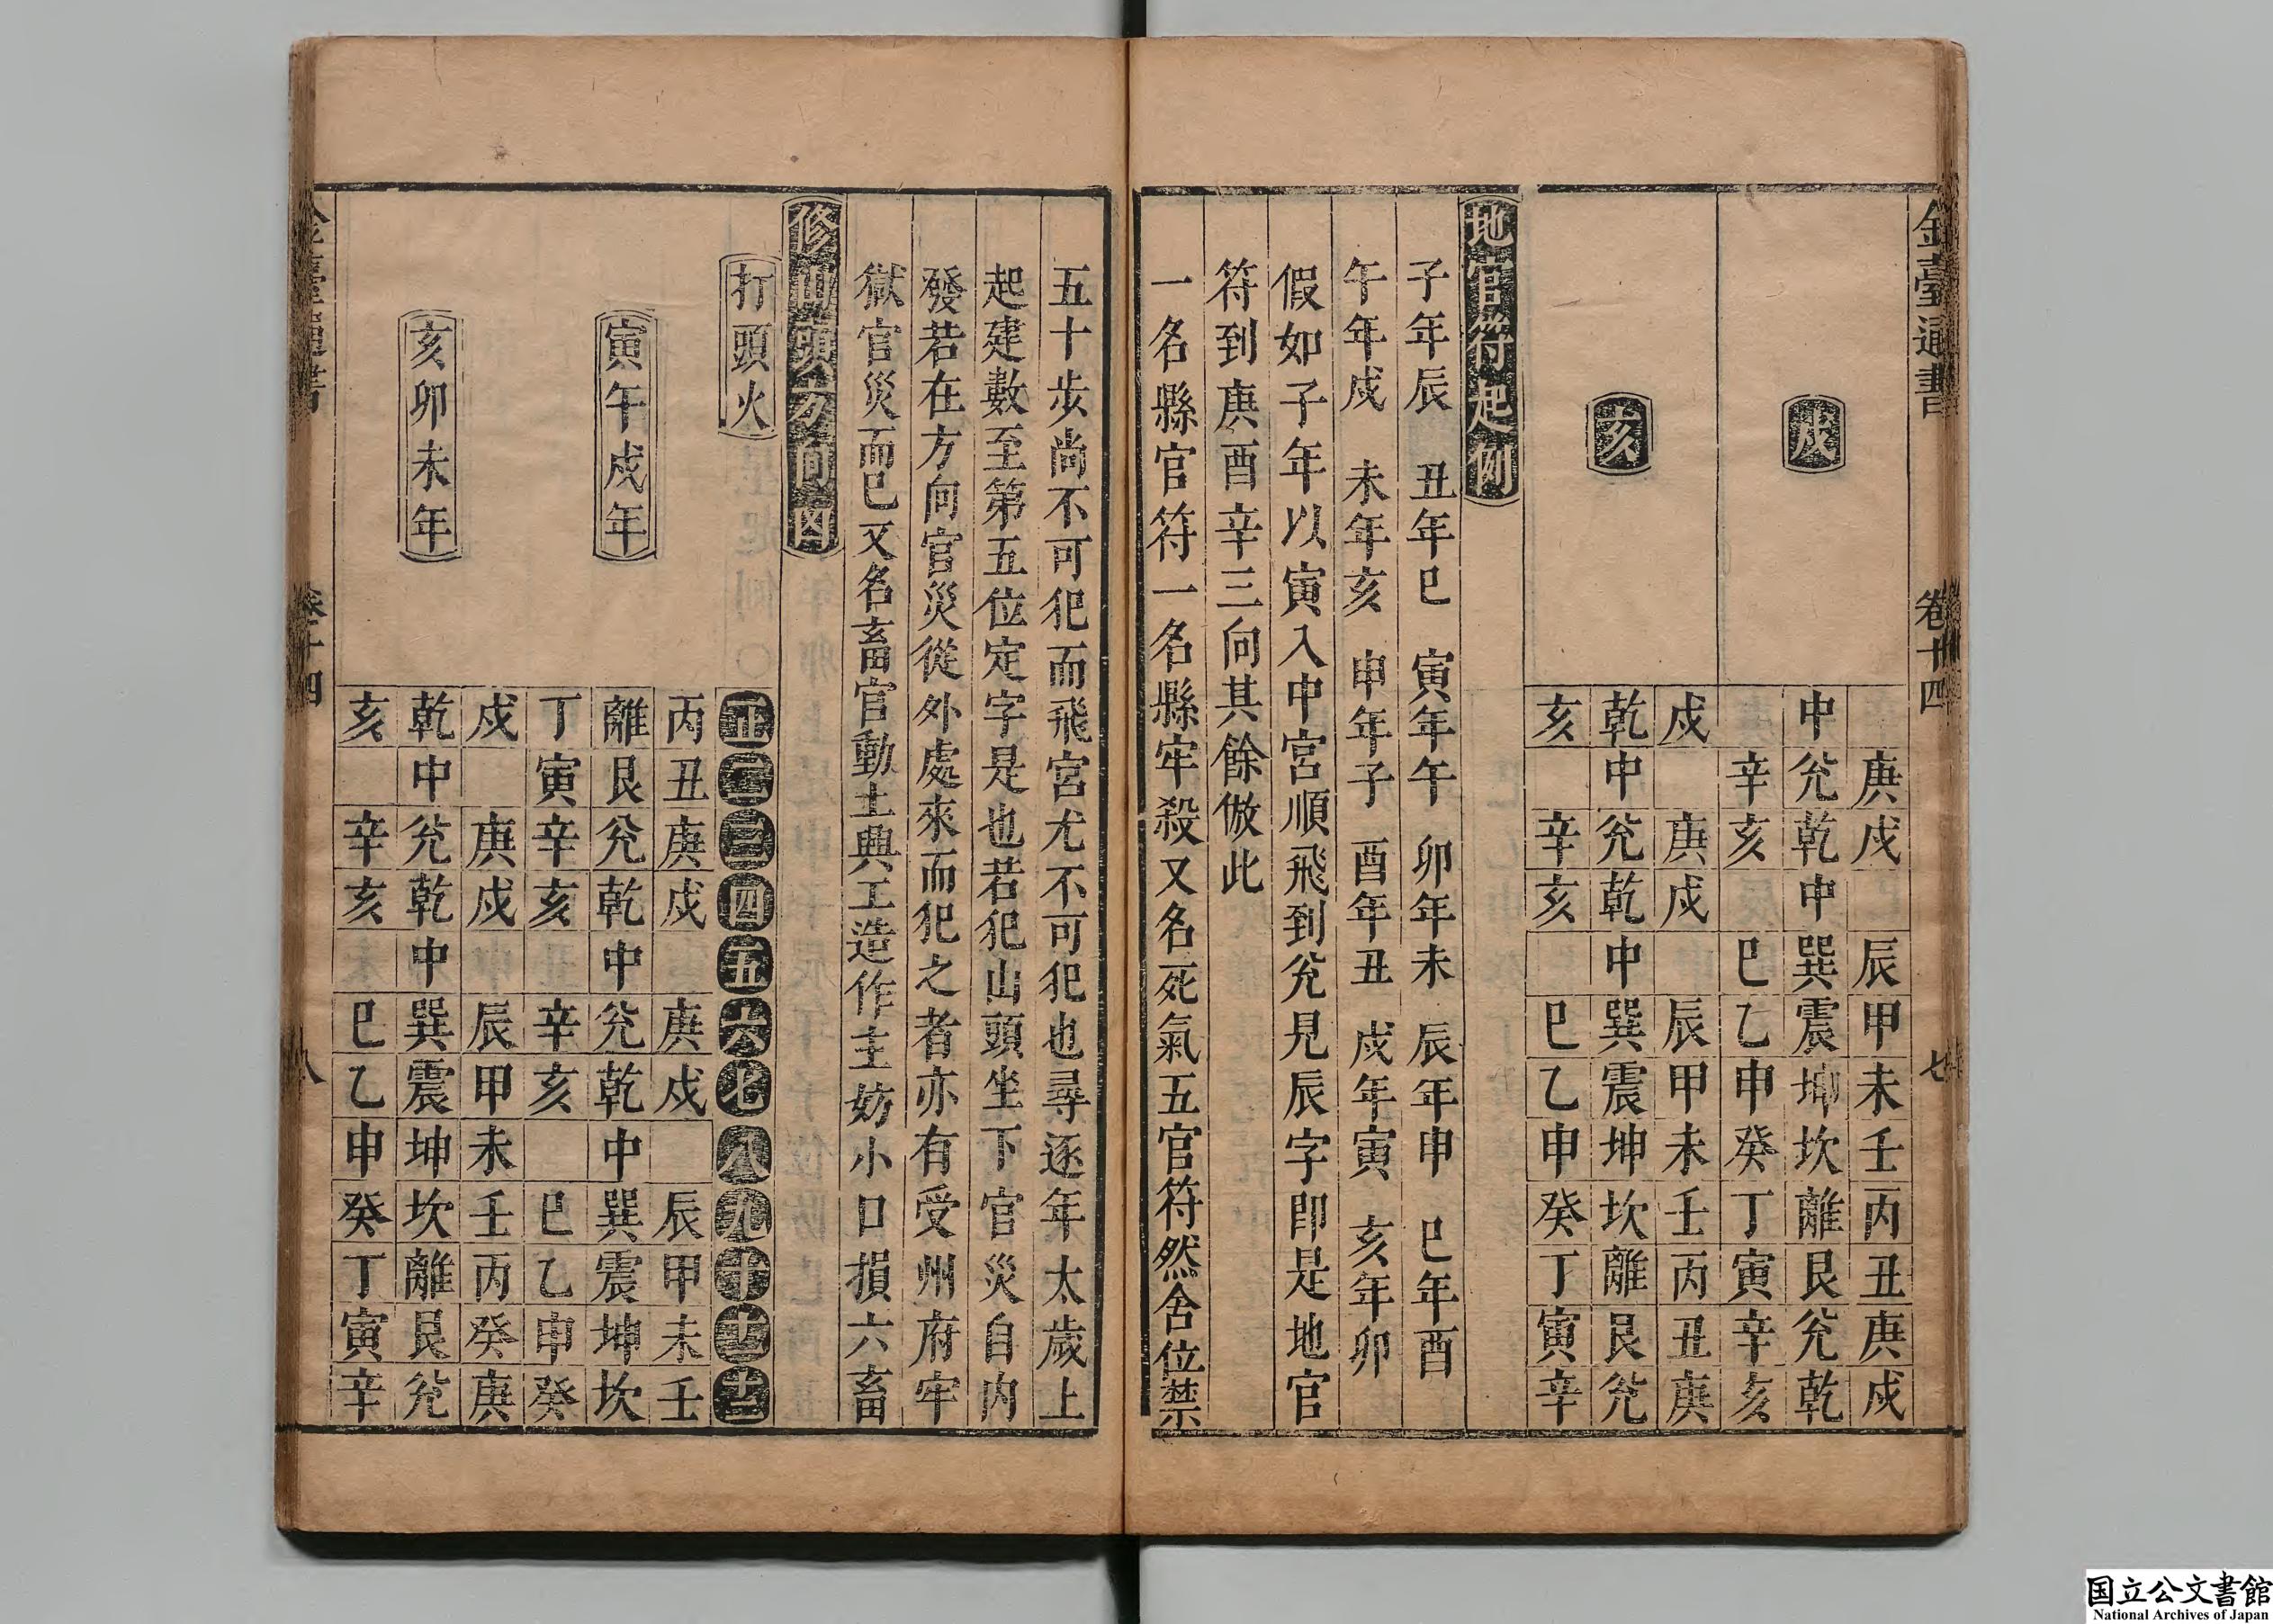 金臺通書 卷十四 七
戌
庚戌 辰甲未壬丙丑庚戌
中兊乾中巽震坤坎離艮兊乾
辛亥 巳乙申癸丁寅辛亥
亥
戌 庚戌 辰甲未壬丙丑庚
乾中兊乾中巽震坤坎離艮兊
亥 辛亥 巳乙申癸丁寅辛
地官符起例
子年辰 丑年巳 寅年午 卯年未 辰年申 巳年酉
午年戌 未年亥 申年子 酉年丑 戌年寅 亥年卯
假如子年以寅入中宮順飛到兊見辰字即是地官
符到庚酉辛三向其餘倣此
一名縣官符一名縣牢殺又名死氣五官符然舍位禁
五十步尚不可犯而飛宮尤不可犯也尋逐年太歲上
起建數至第五位定字是也若犯山頭坐下官災自内
發若在方向官災從外處來而犯之者亦有受州府牢
獄官災而已又名畜官動土興工造作主妨小口損六畜
修山頭方向図
打頭火
正二三四五六七八九十十一十二
寅午戌年
丙丑庚戌 庚戌 辰甲未壬
離艮兊乾中兊乾中巽震坤坎
丁寅辛亥 辛亥 巳乙申癸
亥卯未年
戌 庚戌 辰甲未壬丙癸庚
乾中兊乾中巽震坤坎離艮兊
亥 辛亥 巳乙申癸丁寅辛
卷十四 八
国立公文書館
National Archives of Japan